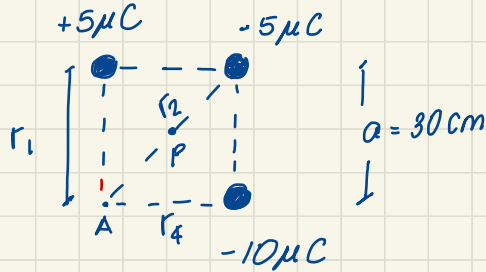 +5μC
-5μC
r₁
r₂
P
a = 30 cm
A
r₄
-10μC